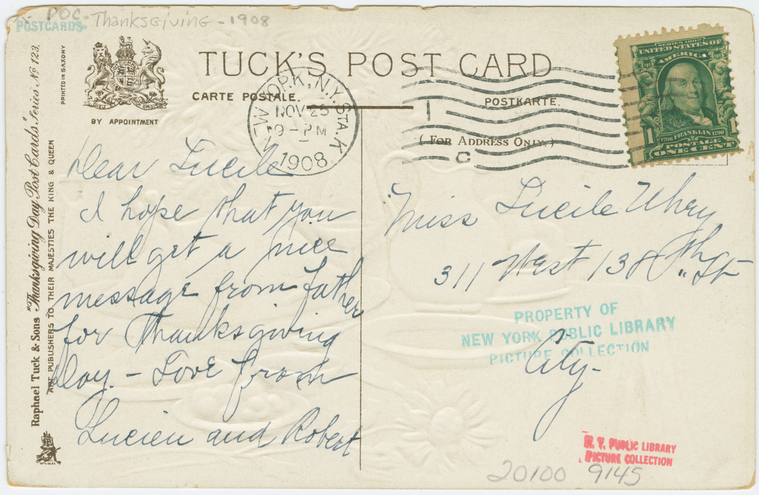 POC-Thanksgiving-1908
POSTCARDS
TUCK'S POST CARD
CARTE POSTALE.
POSTKARTE.
(FOR ADDRESS ONLY.)
BY APPOINTMENT
PRINTED IN SAXONY
Raphael Tuck & Sons "Thanksgiving Day Post Cards" Series No 123.
ART PUBLISHERS TO THEIR MAJESTIES THE KING & QUEEN
NEW YORK, N.Y. STA. K
NOV 25
9-PM
1908
UNITED STATES OF
AMERICA
1706 FRANKLIN 1790
POSTAGE
ONE CENT
Dear Lucile
I hope that you
will get a nice
message from father
for Thanksgiving
day. - Love from
Lucien and Robert
Miss Lucile Uhry
311 West 138th St
City-
PROPERTY OF
NEW YORK PUBLIC LIBRARY
PICTURE COLLECTION
N. Y. PUBLIC LIBRARY
PICTURE COLLECTION
20100 9145